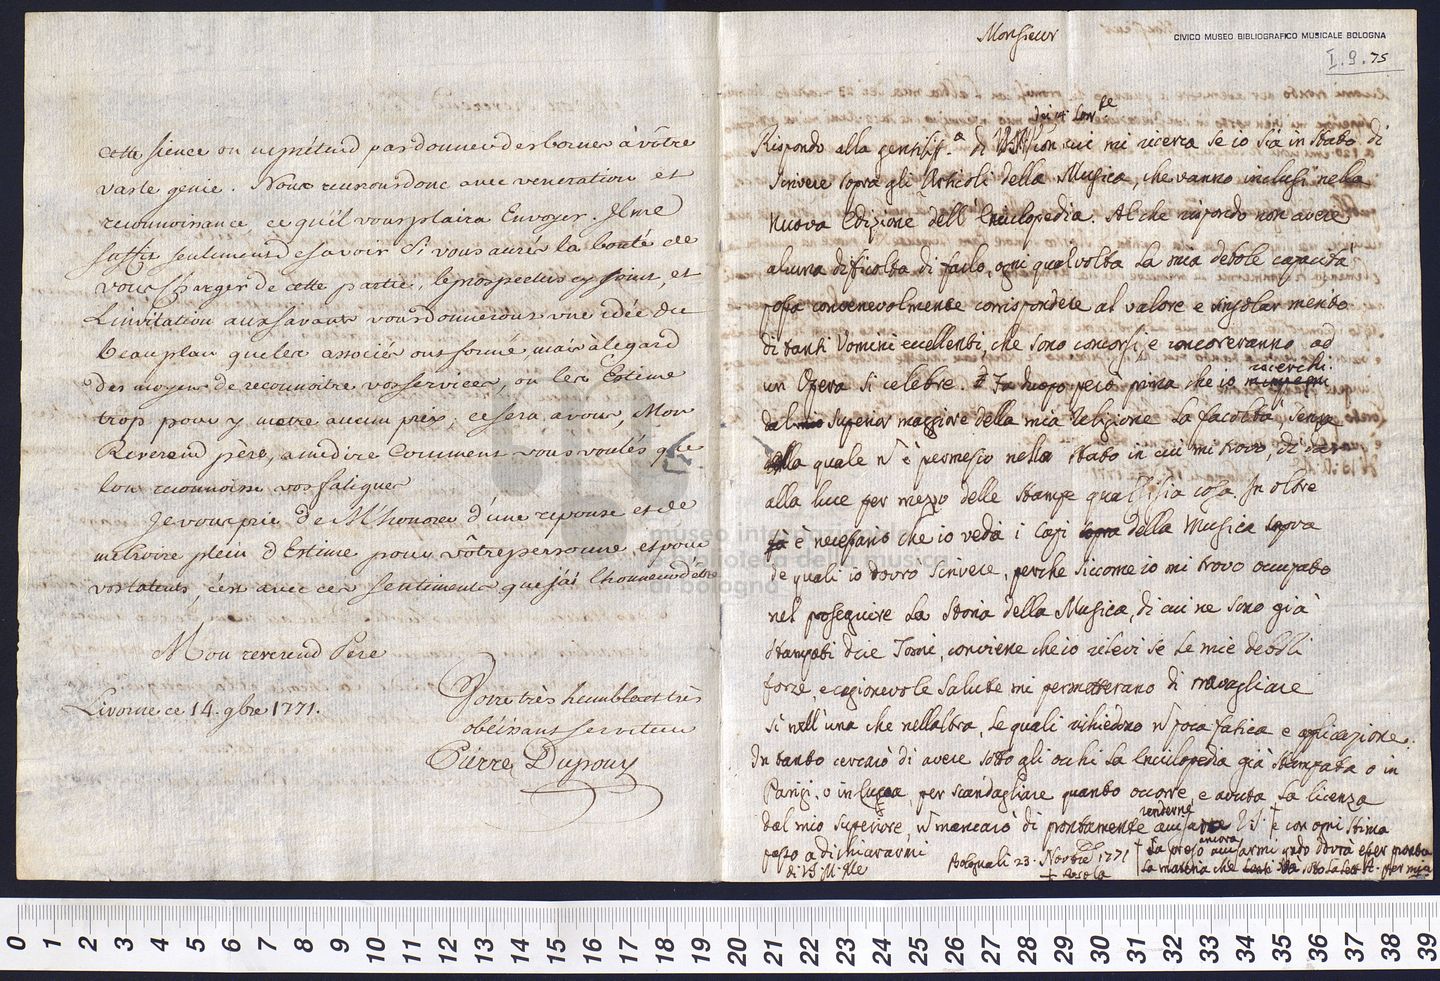 cette sience on ne prétend pas donner des bornes à vôtre
vaste genie. Nous recevrons donc avec veneration et
reconnoissance, ce qu'il vous plaira Envoyer. Il me
suffit seulement de savoir si vous aurés la bonté de
vous charger de cette partie, le prospectus cy joint, et
L'invitation aux savants vous donnerons une idée du
beau plan que les associés ont formé, mais à l'egard
des moyens de reconnoitre vos services, on les Estime
trop pour y metre aucun prix, ce sera a vous, Mon
Reverend père, a me dire Comment vous voulés que
l'on reconnoisse vos fatigues
Je vous prie de M'honorer d'une reponse et de
me croire plein d'Estime pour vôtre personne, et pour
vos talents, c'est avec ces sentiments que j'ai l'honneur d'être
Mon reverend Père
Livorne ce 14. 9bre 1771.
Votre très humble et très
obéissant serviteur
Pierre Dupouy
CIVICO MUSEO BIBLIOGRAFICO MUSICALE BOLOGNA
I. 9. 75
Monsieur
Rispondo alla gentiliss.a di con cui mi ricerca se io sia in stato di
scrivere sopra gli Articoli della Musica, che vanno inclusi nella
nuova Edizione dell'Enciclopedia. Al che rispondo non avere
alcuna dificoltà di farlo, ogni qualvolta la mia debole capacità
possa convenevolmente corrispondere al valore e singolar merito
di tanti Uomini eccellenti, che sono concorsi, e concoreranno ad
un Opera sì celebre. Fa duopo però prima che io ricerchi
dal mio Superior maggiore della mia Religione la facoltà, senza
alla quale n è permesso nello stato in cui mi trovo, di dar
alla luce per mezzo delle stampe qualsisia cosa. In oltre
è necessario che io veda i Capi sopra della Musica sovra
de quali io dovrò scrivere, perche siccome io mi trovo occupato
nel proseguire la Storia della Musica, di cui ne sono già
stampati due Tomi, conviene che io rilevi se le mie deboli
forze, e cagionevole salute mi permetterano di travagliare
sì nell'una che nell'altra, le quali richiedono n poca fatica e applicazione.
In tanto cercarò di avere sotto gli occhi la Enciclopedia già stampata o in
Parigi, o in Lucca, per scandagliare quanto occorre, e avuta la licenza
dal mio superiore, n mancarò di prontamente renderne V.S. e con ogni stima
passo a dichiararmi
di V.S. M. Ille
Bologna li 23. Novbre 1771